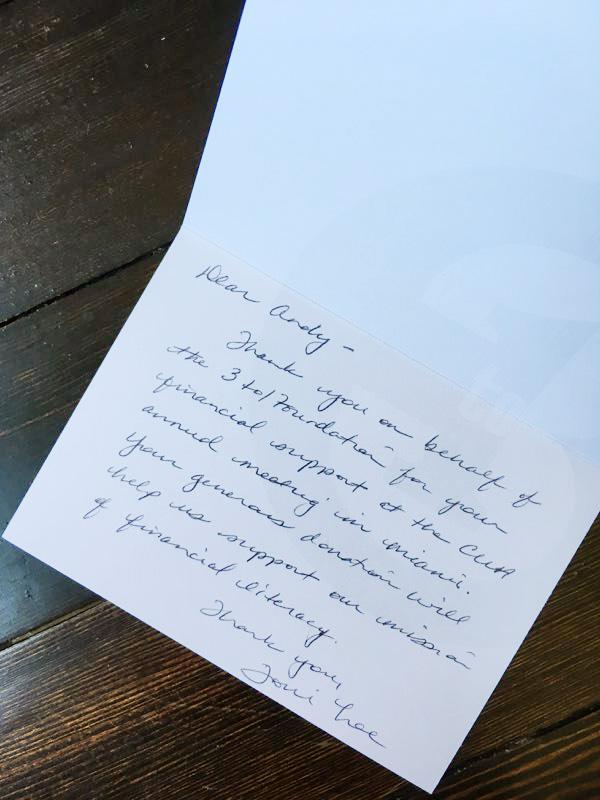 Dear Andy –
Thank you on behalf of
the 3 to 1 Foundation for your
financial support at the CUNA
annual meeting in Miami.
Your generous donation will
help us support our mission
of financial literacy.
Thank you,
Toni